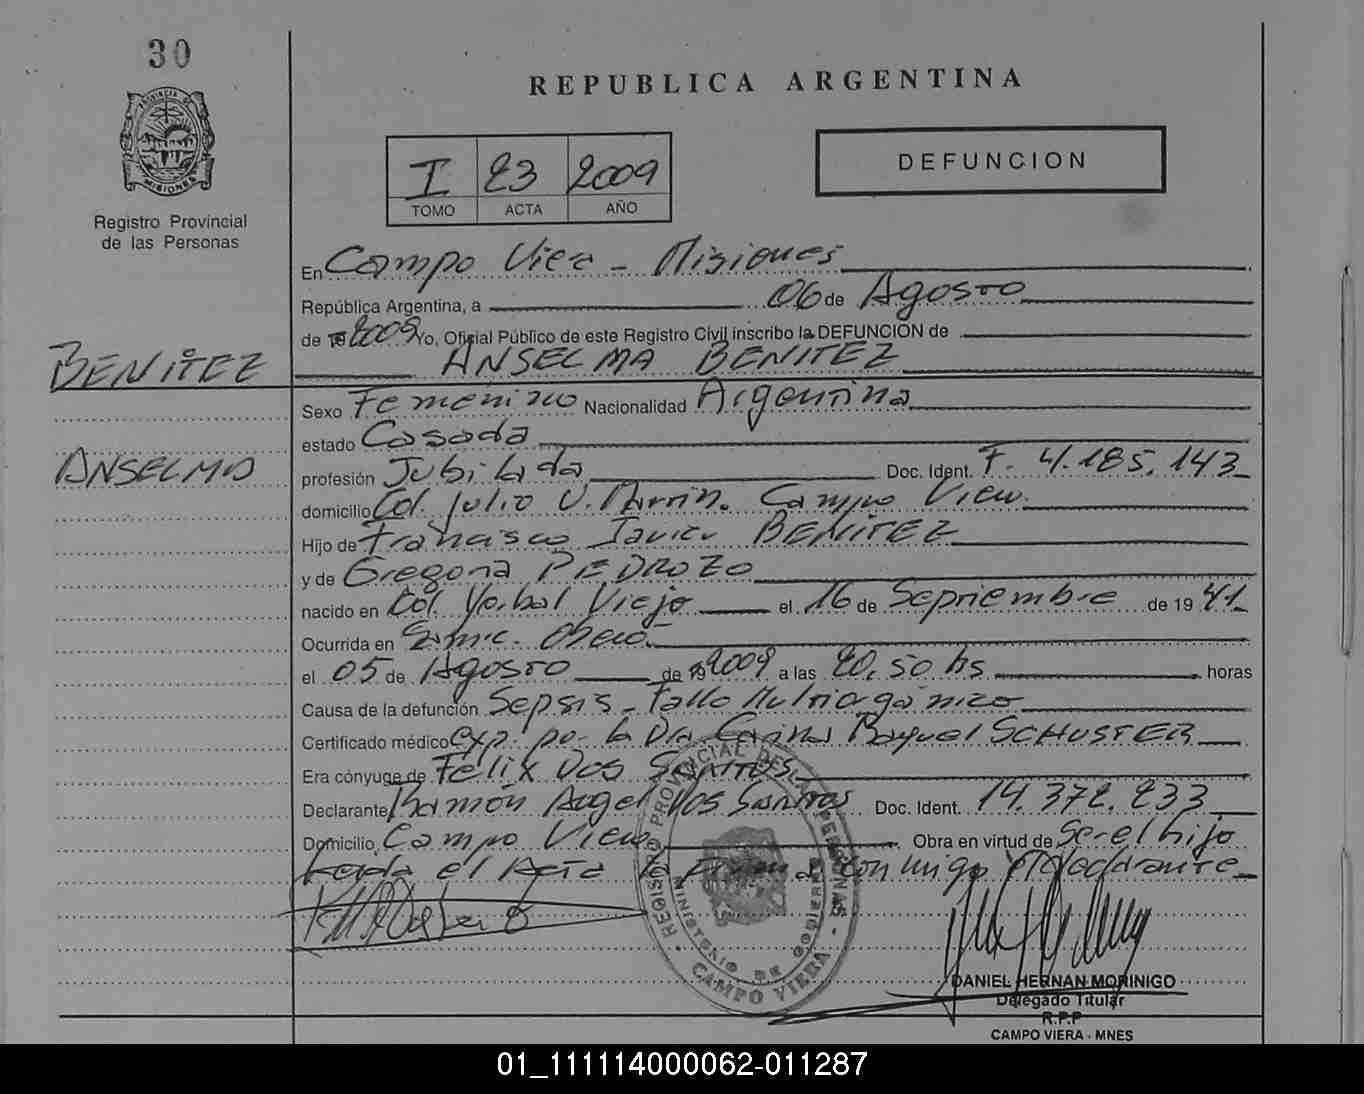 30
PROVINCIA DE
MISIONES
Registro Provincial
de las Personas
REPUBLICA ARGENTINA
I 23 2009
TOMO ACTA AÑO
DEFUNCION
En Campo Viera - Misiones
República Argentina, a 06 de Agosto
de 19 2009 Yo, Oficial Público de este Registro Civil inscribo la DEFUNCION de
BENITEZ
ANSELMA BENITEZ
Sexo Femenino Nacionalidad Argentina
estado Casada
ANSELMA
profesión Jubilada Doc. Ident. F. 4.185.143
domicilio Col. Julio U. Martin. Campo Viera.
Hijo de Francisco Javier BENITEZ
y de Gregoria PEDROZO
nacido en Col. Yerbal Viejo el 16 de Septiembre de 19 41
Ocurrida en Oberá
el 05 de Agosto de 19 2009 a las 20,50 hs horas
Causa de la defunción Sepsis - Fallo Multiorgánico
Certificado médico exp. por la Dra Carina Raquel SCHUSTER
Era cónyuge de Félix DOS SANTOS
Declarante Ramón Angel Dos Santos Doc. Ident. 14.372.233
Domicilio Campo Viera Obra en virtud de Ser el hijo
Leida el Acta la Firma conmigo el declarante
REGISTRO PROVINCIAL DE LAS PERSONAS
MINISTERIO DE GOBIERNO
CAMPO VIERA
DANIEL HERNAN MORINIGO
Delegado Titular
R.P.P
CAMPO VIERA - MNES
01_111114000062-011287